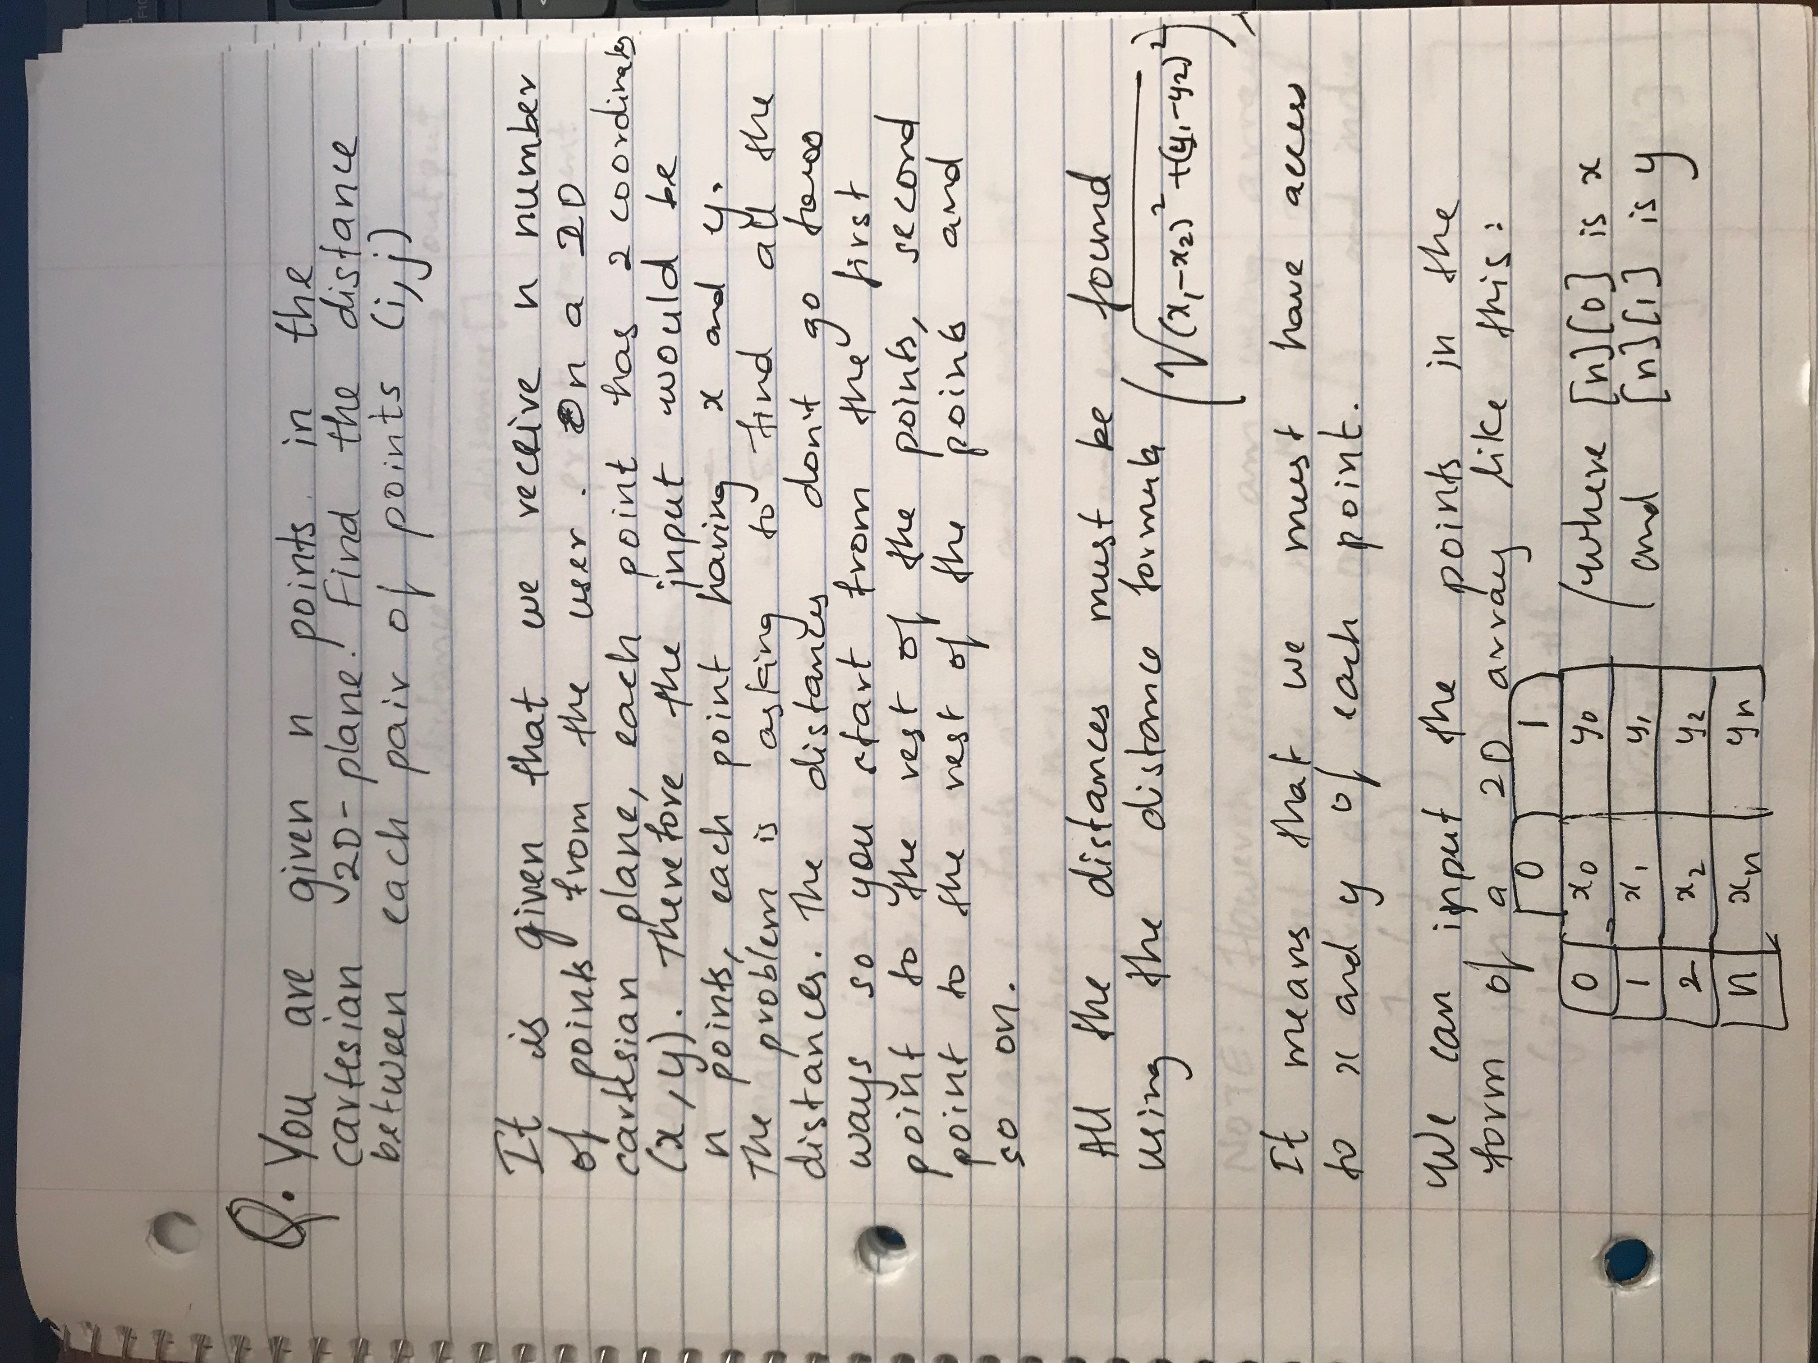 Q. You are given n points in the
cartesian 2D-plane. Find the distance
between each pair of points (i,j)
It is given that we receive n number
of points from the user. On a 2D
cartesian plane, each point has 2 coordinates
(x,y). Therefore the input would be
n points, each point having x and y.
The problem is asking to find all the
distances. The distances don't go two
ways so you start from the first
point to the rest of the points, second
point to the rest of the points and
so on.
All the distances must be found
using the distance formula (√(x₁-x₂)² + (y₁-y₂)²)
It means that we must have access
to x and y of each point.
We can input the points in the
form of a 2D array like this:
0 1
0 x₀ y₀ (where [n][0] is x
1 x₁ y₁ and [n][1] is y
2 x₂ y₂
n xₙ yₙ